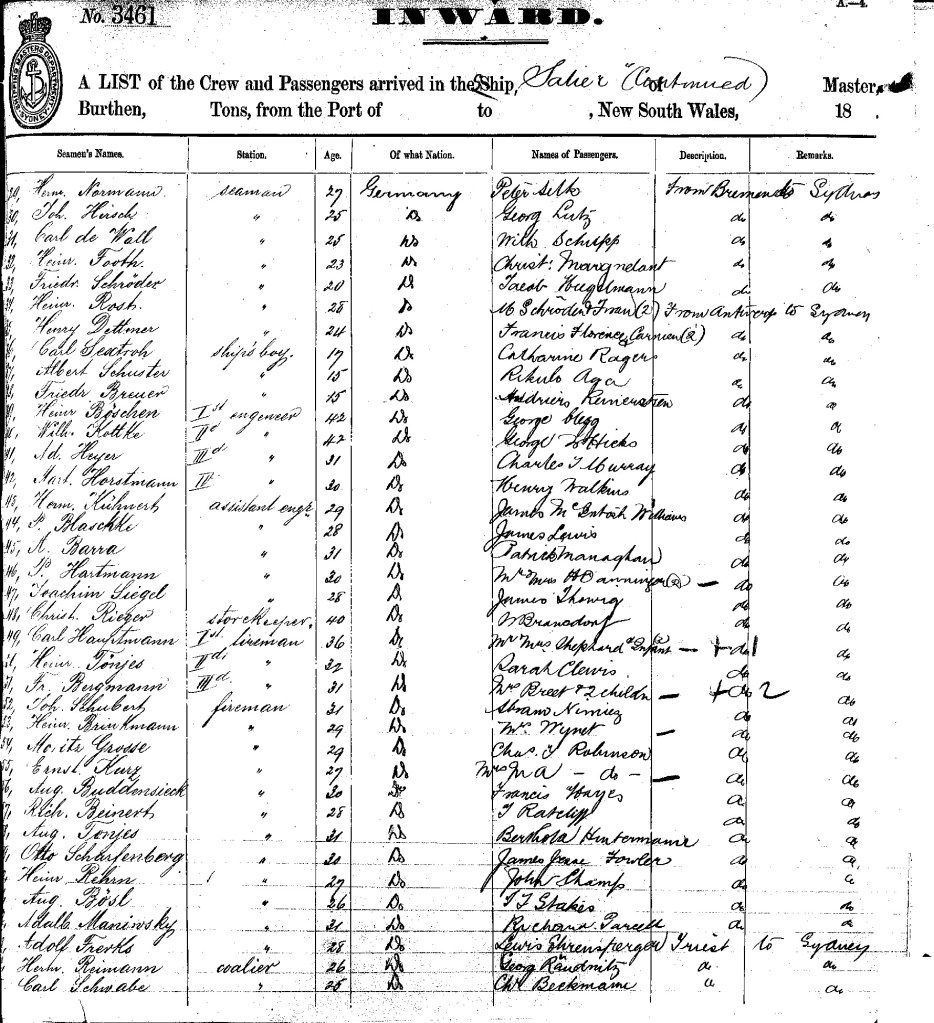 No. 3461
INWARD.
A.—4.
SHIPPING MASTERS DEPARTMENT SYDNEY
A LIST of the Crew and Passengers arrived in the Ship, Salier (Continued) of Master,
Burthen, Tons, from the Port of to , New South Wales, 18
Seamen's Names. Station. Age. Of what Nation. Names of Passengers. Description. Remarks.
29, Herm. Normann seaman 27 Germany Peter Selk From Bremen to Sydney
30, Joh. Hirsch " 25 Do Georg Lutz do do
31, Carl de Wall " 25 Do Wilh Schupp do do
32, Heinr. Footh " 23 Do Christ. Margnelant do do
33, Friedr. Schröder " 20 Do Jacob Hugelmann do do
34, Heinr. Rost. " 28 Do M Schröder & Frau (2) From Antwerp to Sydney
35, Henry Dettmer " 24 Do Francis Florence Carmien (2) do do
36, Carl Sextroh ship's boy. 17 Do Catharine Ragers do do
37, Albert Schuster " 15 Do Rikulo Aga do do
38, Friedr Breuer " 15 Do Andries do do
39, Heinr Böschen Ist engeneer 42 Do George Clegg do do
40, Wilh. Kottke IId " 42 Do George W Hicks do do
41, Ad. Heyer IIId. " 31 Do Charles T Murray do do
42, Mart. Horstmann IV " 30 Do Henry Walkins do do
43, Herm. Kühnert assistant engr. 29 Do James McIntosh Williams do do
44, P. Blaschke " 28 Do James Lewis do do
45, A. Barra " 31 Do Patrick Managhan do do
46, P. Hartmann " 30 Do Mr & Mrs H Banninger (2) — do do
47, Joachim Siegel " 28 Do James Thowig do do
48, Christ. Rieger storekeeper. 40 Do W Bransdorf do do
49, Carl Hauptmann Ist fireman 36 Do Mr Mrs Shephard & Infant (2) — + do 1 do
50, Heinr. Tönjes IId. " 32 Do Sarah Clewis do do
51, Fr. Bergmann IIId. " 31 Do Mrs Breet & 2 childn — + do 2 do
52, Joh. Schubert fireman 31 Do Abram Nimiez do do
53, Heinr. Brinkmann " 29 Do Mrs. Wynet — do do
54, Moritz Grosse " 29 Do Chas. T Robinson do do
55, Ernst Kurz " 27 Do Mrs M A — do — — do do
56, Aug. Buddensieck " 30 Do Francis Hayes do do
57, Rich. Beinert " 28 Do T Ratcliff do do
Aug. Tönjes " 31 Do Berthold Hintermann do do
Otto Scharfenberg " 30 Do James Jesse Fowler do do
Heinr Rehrn " 27 Do John Champ do do
Aug. Bösl " 26 Do T T Stakes do do
Adalb. Maniwsky " 31 Do Richard Farrell do do
Adolf Frerks " 28 Do Lewis Ehrensperger Triest to Sydney
Herm. Reimann coalier 26 Do Georg Raudnitz do do
Carl Schwabe " 25 Do Chr Beckmann do do